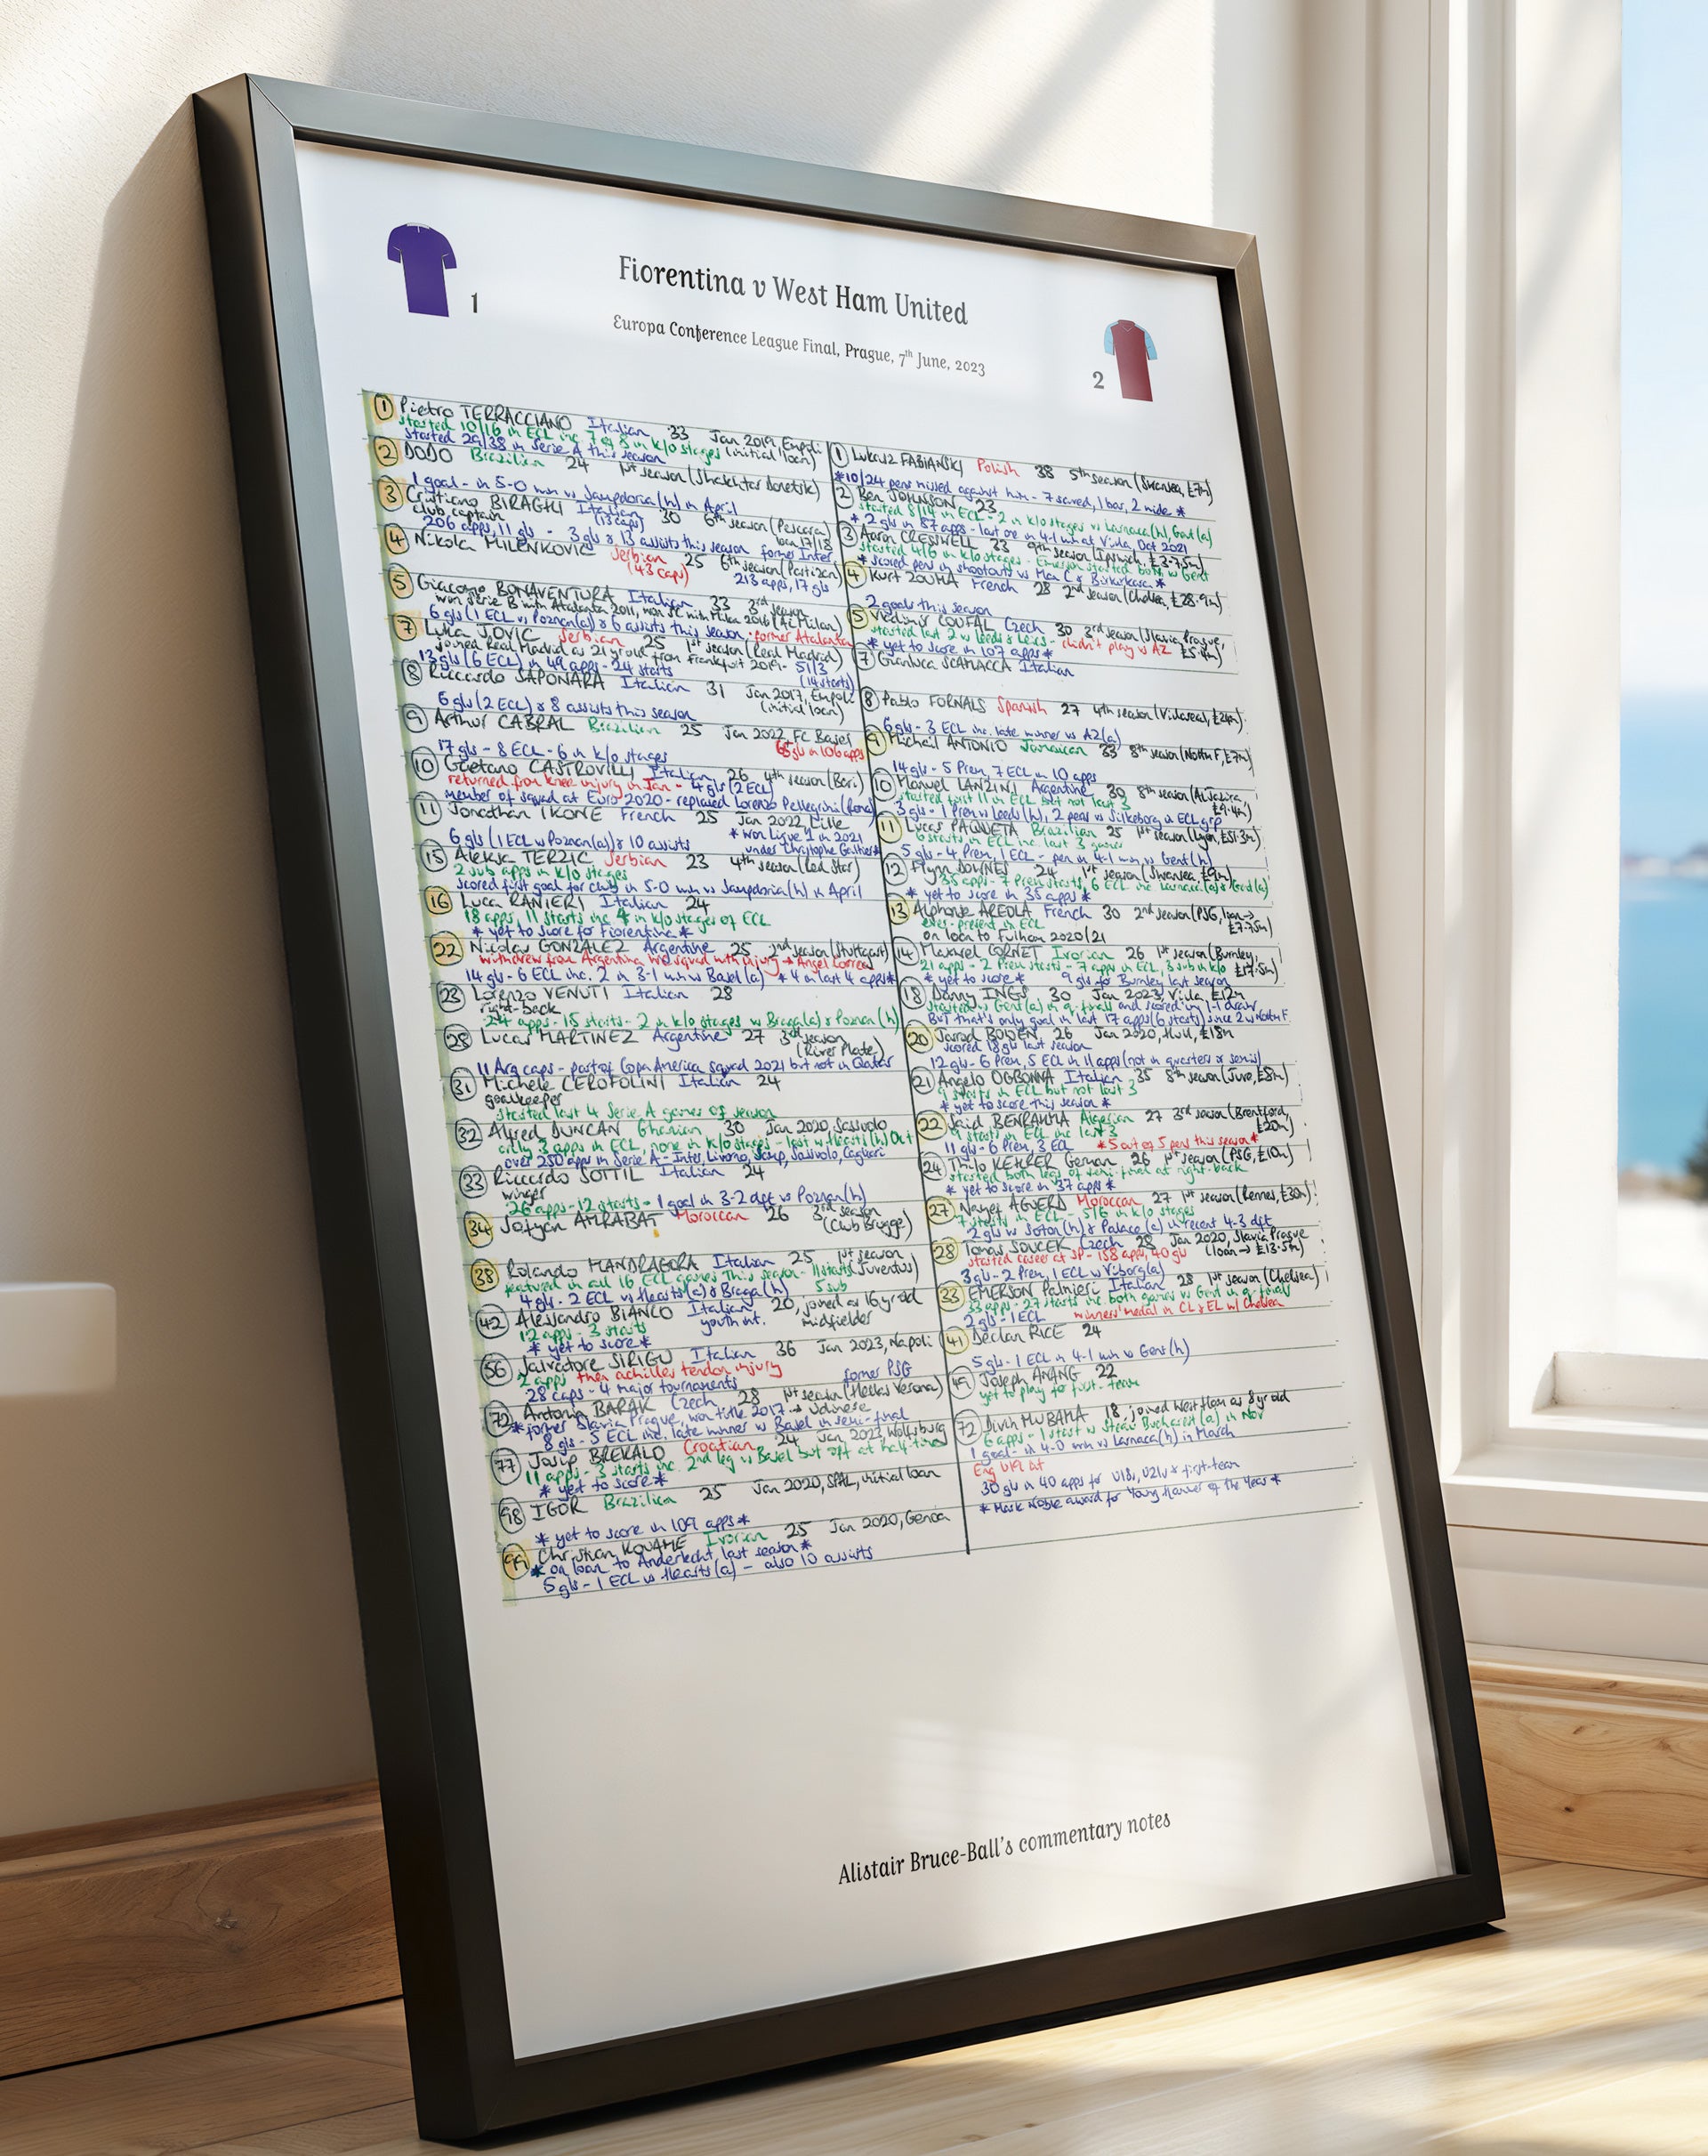 1
Fiorentina v West Ham United
Europa Conference League Final, Prague, 7th June, 2023
2
1 Pietro TERRACCIANO Italian 33 Jan 2019, Empoli
started 10/16 in ECL inc 7 of 8 in k/o stages (initial loan)
started 29/38 in Serie A this season
2 DODO Brazilian 24 1st season (Shakhtar Donetsk)
1 goal - in 5-0 win vs Sampdoria (h) in April
3 Cristiano BIRAGHI Italian 30 6th season (Pescara)
club captain (13 caps) loan 17/18
206 apps, 11 gls - 3 gls & 13 assists this season former Inter
4 Nikola MILENKOVIC Serbian 25 6th season (Partizan)
(43 caps) 213 apps, 17 gls
5 Giacomo BONAVENTURA Italian 33 3rd season
won Serie B with Atalanta 2011, won SC with Milan 2016 (AC Milan)
6 gls (1 ECL vs Poznan (a)) & 6 assists this season - former Atalanta
7 Luka JOVIC Serbian 25 1st season (Real Madrid)
joined Real Madrid as 21 yr old from Frankfurt 2019 - 51/3
13 gls (6 ECL) in 49 apps - 24 starts (14 starts)
8 Riccardo SAPONARA Italian 31 Jan 2017, Empoli
(initial loan)
6 gls (2 ECL) & 8 assists this season
9 Arthur CABRAL Brazilian 25 Jan 2022, FC Basel
65 gls in 106 apps
17 gls - 8 ECL - 6 in k/o stages
10 Gaetano CASTROVILLI Italian 26 4th season (Bari)
returned from knee injury in Jan - 4 gls (2 ECL)
member of squad at Euro 2020 - replaced Lorenzo Pellegrini (Roma)
11 Jonathan IKONE French 25 Jan 2022, Lille
* won Ligue 1 in 2021
6 gls (1 ECL vs Poznan (a)) & 10 assists under Christophe Galtier *
15 Aleksa TERZIC Serbian 23 4th season (Red Star)
2 sub apps in k/o stages
scored first goal for club in 5-0 win vs Sampdoria (h) in April
16 Luca RANIERI Italian 24
18 apps, 11 starts inc 4 in k/o stages of ECL
* yet to score for Fiorentina *
22 Nicolas GONZALEZ Argentine 25 2nd season (Stuttgart)
withdrew from Argentina WC squad with injury → Angel Correa
14 gls - 6 ECL inc. 2 in 3-1 win vs Basel (a) * 4 in last 4 apps *
23 Lorenzo VENUTI Italian 28
right-back
24 apps - 15 starts - 2 in k/o stages vs Braga (a) & Poznan (h)
28 Lucas MARTINEZ Argentine 27 3rd season
(River Plate)
11 Arg caps - part of Copa America squad 2021 but not in Qatar
31 Michele CEROFOLINI Italian 24
goalkeeper
started last 4 Serie A games of season
32 Alfred DUNCAN Ghanian 30 Jan 2020, Sassuolo
only 3 apps in ECL, none in k/o stages - last vs Hearts (h) Oct
over 250 apps in Serie A - Inter, Livorno, Samp, Sassuolo, Cagliari
33 Riccardo SOTTIL Italian 24
winger
26 apps - 12 starts - 1 goal in 3-2 dft vs Poznan (h)
34 Sofyan AMRABAT Moroccan 26 3rd season
(Club Brugge)
38 Rolando MANDRAGORA Italian 25 1st season
featured in all 16 ECL games this season - 11 starts (Juventus)
4 gls - 2 ECL vs Hearts (a) & Braga (h) 5 sub
42 Alessandro BIANCO Italian 20, joined as 16 yr old
12 apps - 3 starts youth int. midfielder
* yet to score *
56 Salvatore SIRIGU Italian 36 Jan 2023, Napoli
2 apps then achilles tendon injury
28 caps - 4 major tournaments former PSG
72 Antonin BARAK Czech 28 1st season (Hellas Verona)
* former Slavia Prague, won title 2017 → Udinese
8 gls - 5 ECL inc. late winner vs Basel in semi-final
77 Josip BREKALO Croatian 24 Jan 2023, Wolfsburg
11 apps - 3 starts inc. 2nd leg vs Basel but off at half-time
* yet to score *
98 IGOR Brazilian 25 Jan 2020, SPAL, initial loan
* yet to score in 109 apps *
99 Christian KOUAME Ivorian 25 Jan 2020, Genoa
* on loan to Anderlecht last season *
5 gls - 1 ECL vs Hearts (a) - also 10 assists
1 Lukasz FABIANSKI Polish 38 5th season (Swansea, £7m)
* 10/24 pens missed against him - 7 saved, 1 bar, 2 wide *
2 Ben JOHNSON 23
started 8/14 in ECL - 2 in k/o stages vs Larnaca (h), Gent (a)
* 2 gls in 87 apps - last one in 4-1 win at Villa, Oct 2021
3 Aaron CRESSWELL 33 9th season (Ipswich, £3.75m)
started 4/6 in k/o stages - Emerson started both vs Gent
* scored pens in shootouts vs Man C & Birkirkara *
4 Kurt ZOUMA French 28 2nd season (Chelsea, £28.9m)
2 goals this season
5 Vladimir COUFAL Czech 30 3rd season (Slavia Prague,
started last 2 vs Leeds & Leics - didn't play vs AZ £5.4m)
* yet to score in 107 apps *
7 Gianluca SCAMACCA Italian
8 Pablo FORNALS Spanish 27 4th season (Villareal, £24m)
6 gls - 3 ECL inc. late winner vs AZ (a)
9 Michail ANTONIO Jamaican 33 8th season (Nottm F, £7m)
14 gls - 5 Prem, 7 ECL in 10 apps
10 Manuel LANZINI Argentine 30 8th season (Al Jazira,
started first 11 in ECL but not last 3 £9.4m)
3 gls - 1 Prem vs Leeds (h), 2 pens vs Silkeborg in ECL grp
11 Lucas PAQUETA Brazilian 25 1st season (Lyon, £51.3m)
6 starts in ECL inc. last 3 games
5 gls - 4 Prem, 1 ECL - pen in 4-1 win vs Gent (h)
12 Flynn DOWNES 24 1st season (Swansea £9m)
35 apps - 7 Prem starts, 6 ECL inc Larnaca (a) & Gent (a)
* yet to score in 35 apps *
13 Alphonse AREOLA French 30 2nd season (PSG, loan →
ever-present in ECL £7.75m)
on loan to Fulham 2020/21
14 Maxwel CORNET Ivorian 26 1st season (Burnley,
21 apps - 2 Prem starts - 7 apps in ECL, 3 sub in k/o £17.5m)
* yet to score * 9 gls for Burnley last season
18 Danny INGS 30 Jan 2023, Villa, £12m
started vs Gent (a) in q-finals and scored in 1-1 draw
But that's only goal in last 17 apps (6 starts) since 2 vs Nottm F
20 Jarrod BOWEN 26 Jan 2020, Hull, £18m
scored 18 gls last season
12 gls - 6 Prem, 5 ECL in 11 apps (not in quarters or semis)
21 Angelo OGBONNA Italian 35 8th season (Juve, £8m)
9 starts in ECL but not last 3
* yet to score this season *
22 Said BENRAHMA Algerian 27 3rd season (Brentford,
9 starts in ECL inc last 3 £20m)
11 gls - 6 Prem, 3 ECL * 5 out of 5 pens this season *
24 Thilo KEHRER German 26 1st season (PSG, £10m)
started both legs of semi-final at right-back
* yet to score in 37 apps *
27 Nayef AGUERD Moroccan 27 1st season (Rennes, £30m)
7 starts in ECL - 5/6 in k/o stages
2 gls vs Soton (h) & Palace (a) in recent 4-3 dft
28 Tomas SOUCEK Czech 28 Jan 2020, Slavia Prague
started career at SP - 158 apps, 40 gls (loan → £13.5m)
3 gls - 2 Prem, 1 ECL vs Viborg (a)
33 EMERSON Palmieri Italian 28 1st season (Chelsea)
33 apps - 27 starts inc. both games vs Gent in q-finals
2 gls - 1 ECL winners' medal in CL & EL w/ Chelsea
41 Declan RICE 24
5 gls - 1 ECL in 4-1 win vs Gent (h)
49 Joseph ANANG 22
yet to play for first-team
72 Divin MUBAMA 18, joined West Ham as 8 yr old
6 apps - 1 start vs Steaua Bucharest (a) in Nov
1 goal - in 4-0 win vs Larnaca (h) in March
Eng U19 int
30 gls in 40 apps for U18s, U21s & first-team
* Mark Noble award for Young Hammer of the Year *
Alistair Bruce-Ball's commentary notes